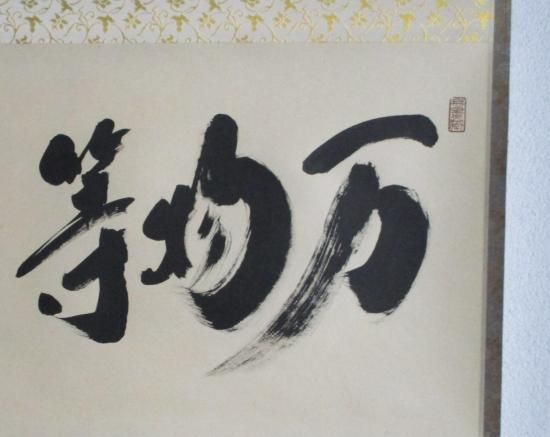 万物等